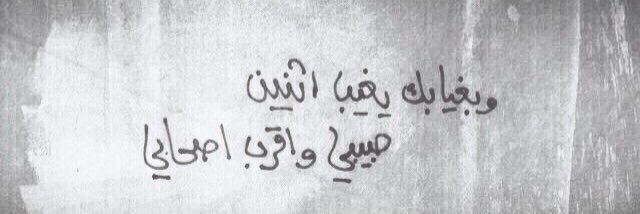 وبغيابك يغيب اثنين
حبيبي واقرب اصحابي